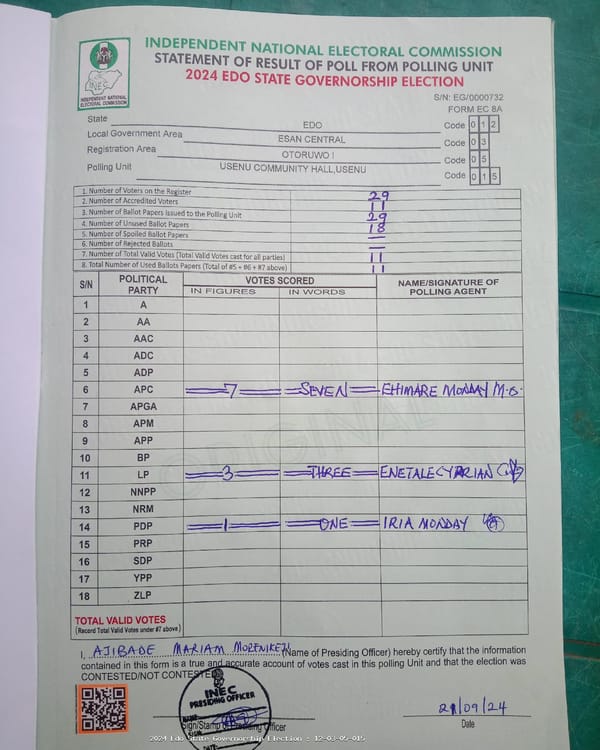 INDEPENDENT NATIONAL ELECTORAL COMMISSION
STATEMENT OF RESULT OF POLL FROM POLLING UNIT
2024 EDO STATE GOVERNORSHIP ELECTION
INEC
INDEPENDENT NATIONAL
ELECTORAL COMMISSION
S/N: EG/0000732
FORM EC 8A
State EDO Code 0 1 2
Local Government Area ESAN CENTRAL Code 0 3
Registration Area OTORUWO I Code 0 5
Polling Unit USENU COMMUNITY HALL,USENU Code 0 1 5
1. Number of Voters on the Register 29
2. Number of Accredited Voters 11
3. Number of Ballot Papers Issued to the Polling Unit 29
4. Number of Unused Ballot Papers 18
5. Number of Spoiled Ballot Papers
6. Number of Rejected Ballots
7. Number of Total Valid Votes (Total Valid Votes cast for all parties) 11
8. Total Number of Used Ballots Papers (Total of #5 + #6 + #7 above) 11
S/N POLITICAL PARTY VOTES SCORED NAME/SIGNATURE OF POLLING AGENT
IN FIGURES IN WORDS
1 A
2 AA
3 AAC
4 ADC
5 ADP
6 APC 7 SEVEN EHIMARE MONDAY M.O.
7 APGA
8 APM
9 APP
10 BP
11 LP 3 THREE ENETALECYPRIAN
12 NNPP
13 NRM
14 PDP 1 ONE IRIA MONDAY
15 PRP
16 SDP
17 YPP
18 ZLP
ORIGINAL
TOTAL VALID VOTES
(Record Total Valid Votes under #7 above)
I, AJIBADE MARIAM MORENIKEJI (Name of Presiding Officer) hereby certify that the information
contained in this form is a true and accurate account of votes cast in this polling Unit and that the election was
CONTESTED/NOT CONTESTED
INEC
PRESIDING OFFICER
NAME:
SIGN:
DATE:
Sign/Stamp of Presiding Officer
21/09/24
Date
2024 Edo State Governorship Election : 12-03-05-015